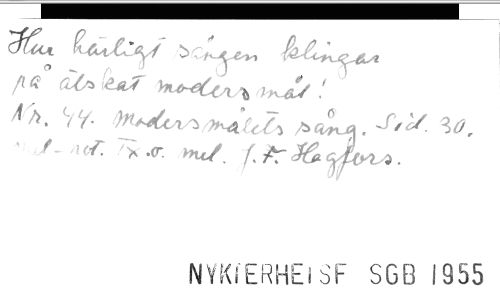 Hur härligt sången klingar
på älskat modersmål!
Nr. 44. Modersmålets sång. Sid. 30.
mel-not. Tx. o. mel. J. F. Hagfors.
NYKTERHETSF SGB 1955